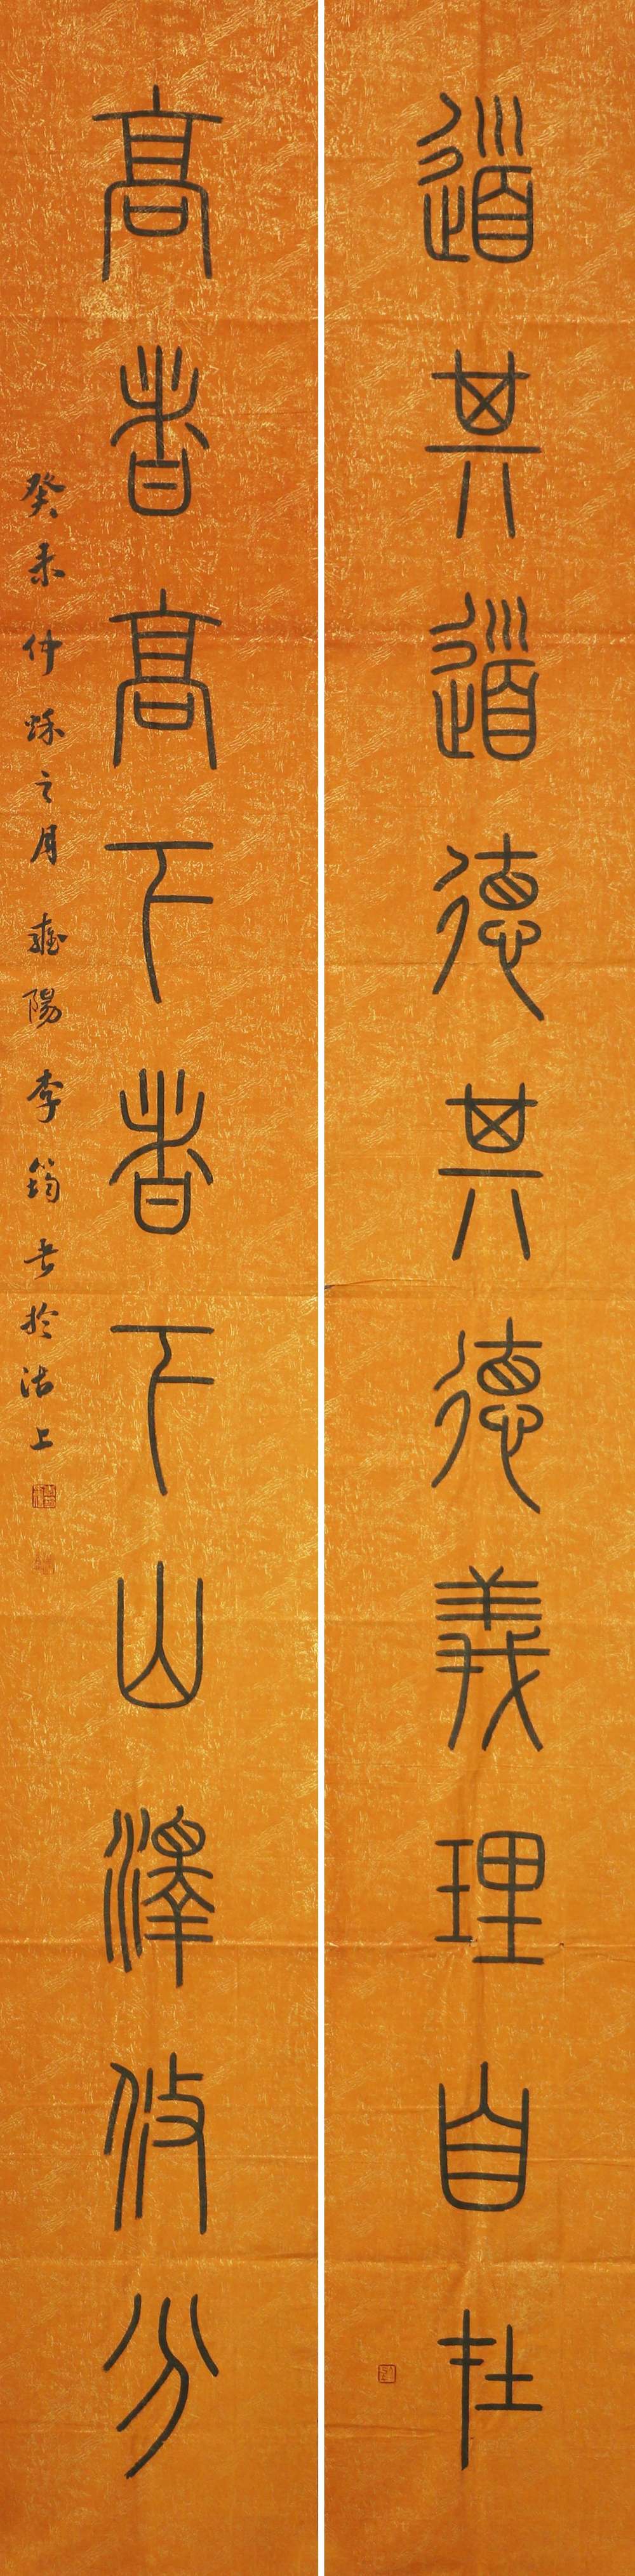 道其道德其德義理自在
高者高下者下山澤攸分
癸未仲秋之月雝陽李筠書於沽上